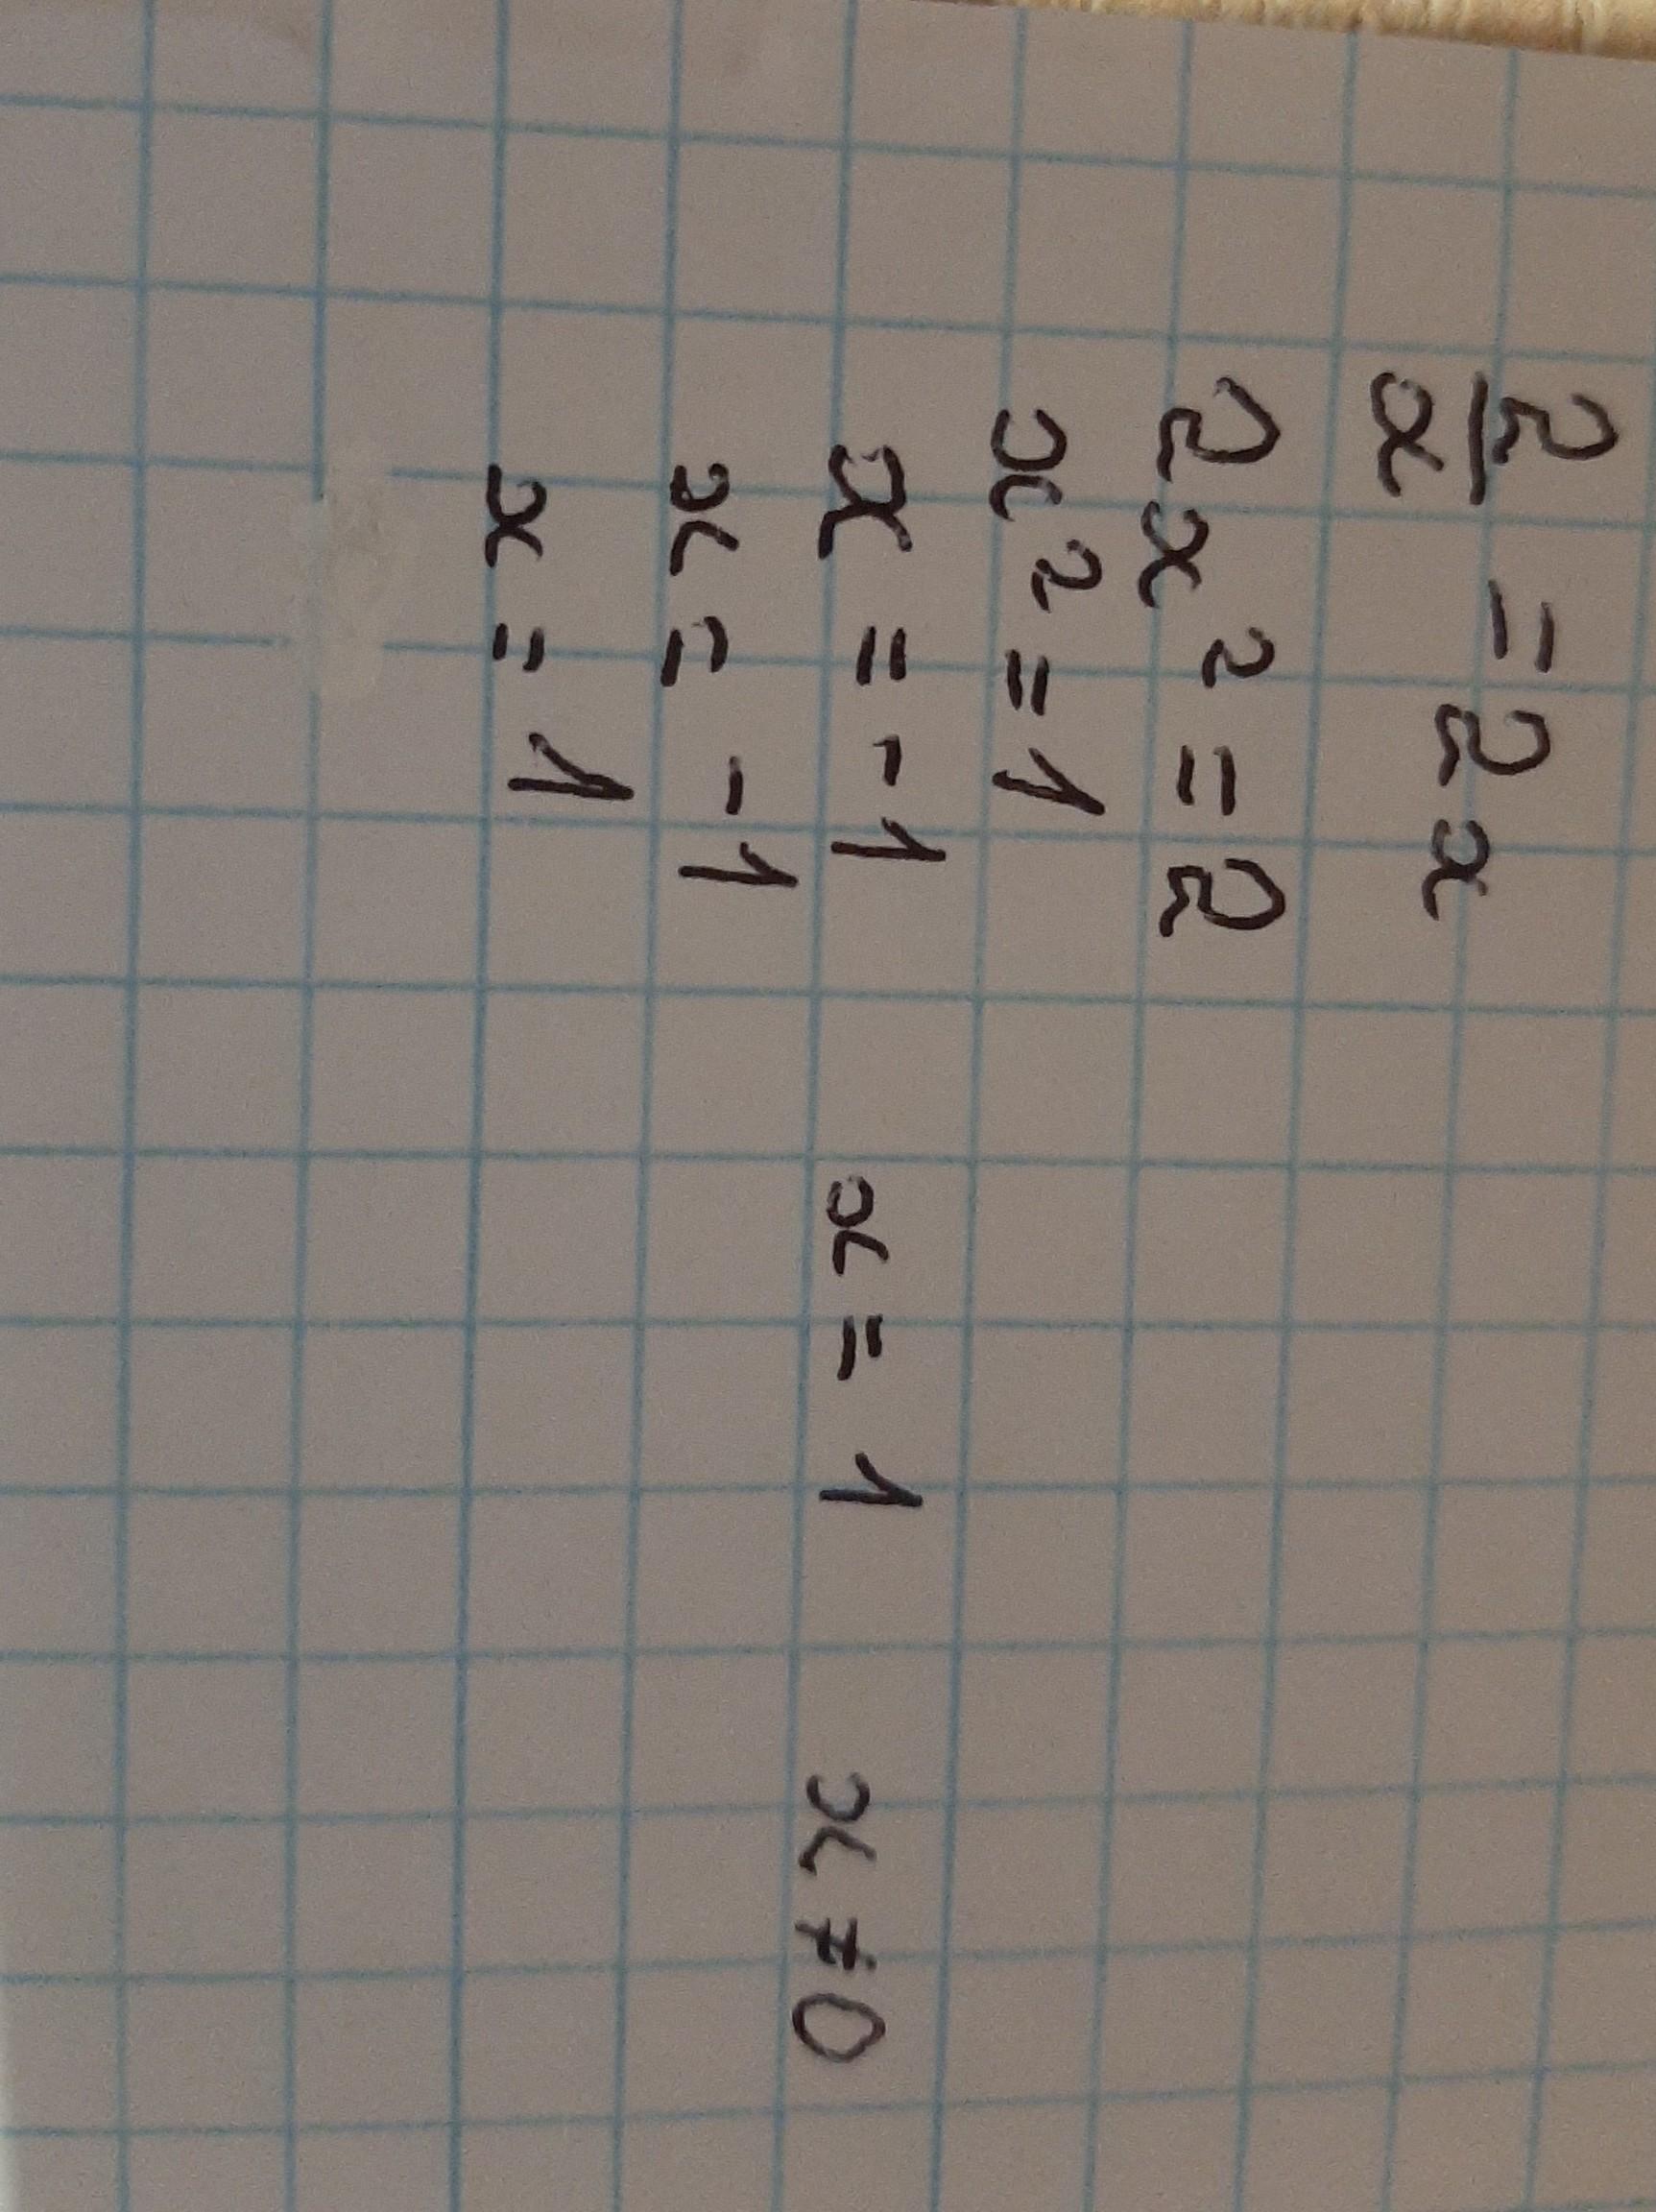 2/x = 2x
2x² = 2
x² = 1
x = -1 x = 1 x ≠ 0
x = -1
x = 1